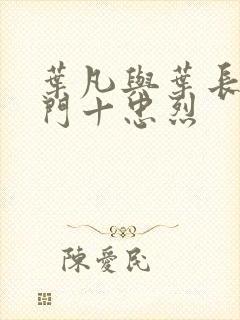 葉凡與葉長
門十忠烈
陳愛民